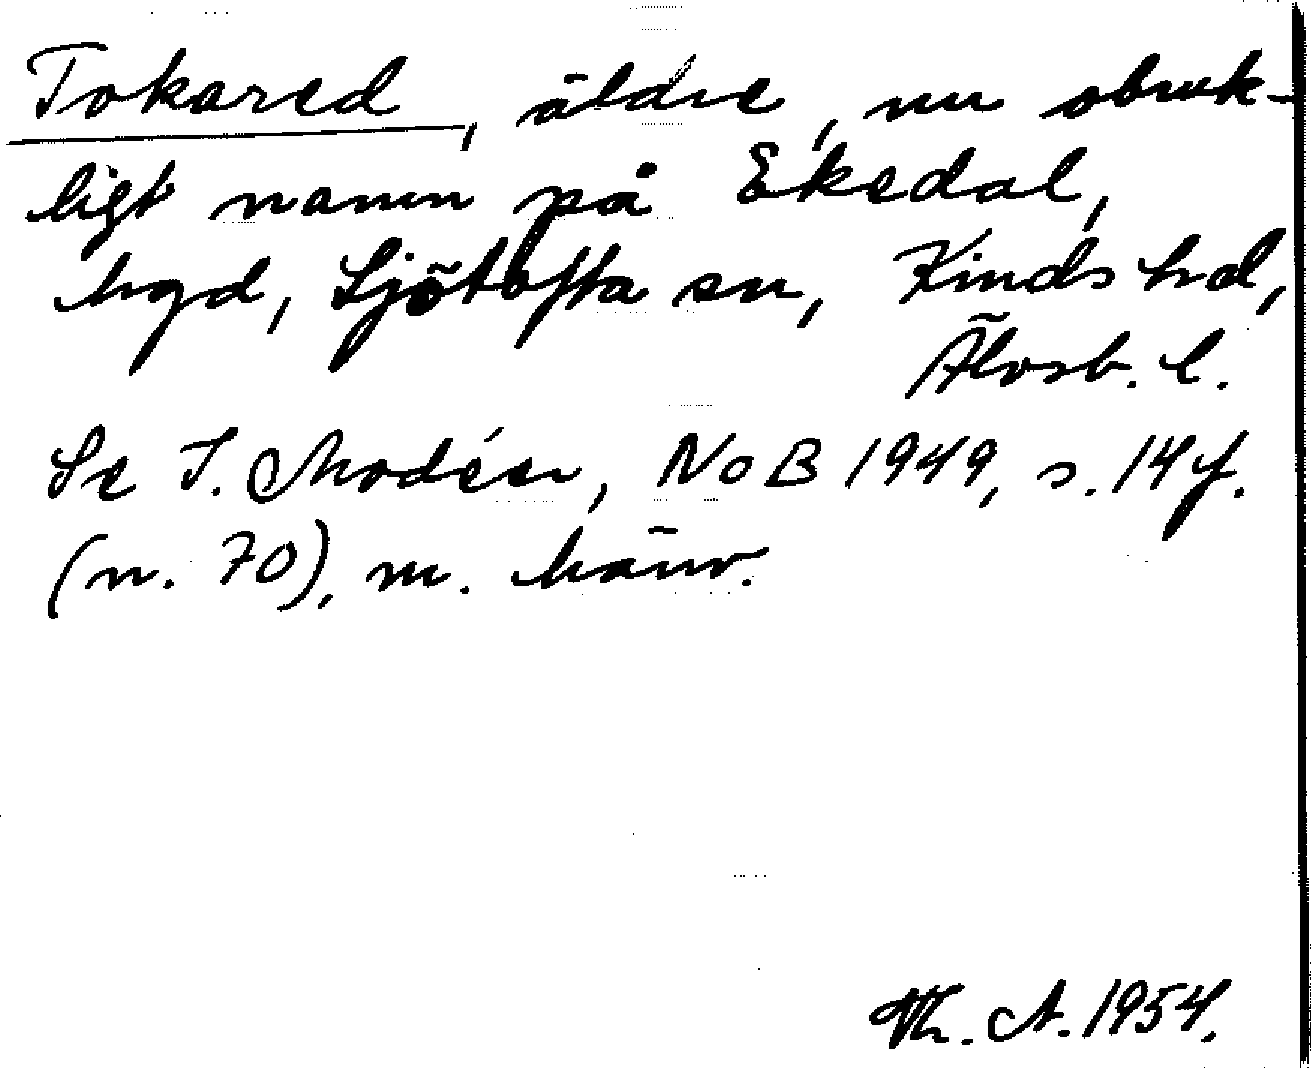 Tokared, äldre, nu obruk-
ligt namn på Ekedal,
hgd, Sjötofta sn, Kinds hd,
Älvsb. l.
Se I. Modéer, NoB 1949, s. 14 f.
(n. 70), m. hänv.
Th. A. 1954.